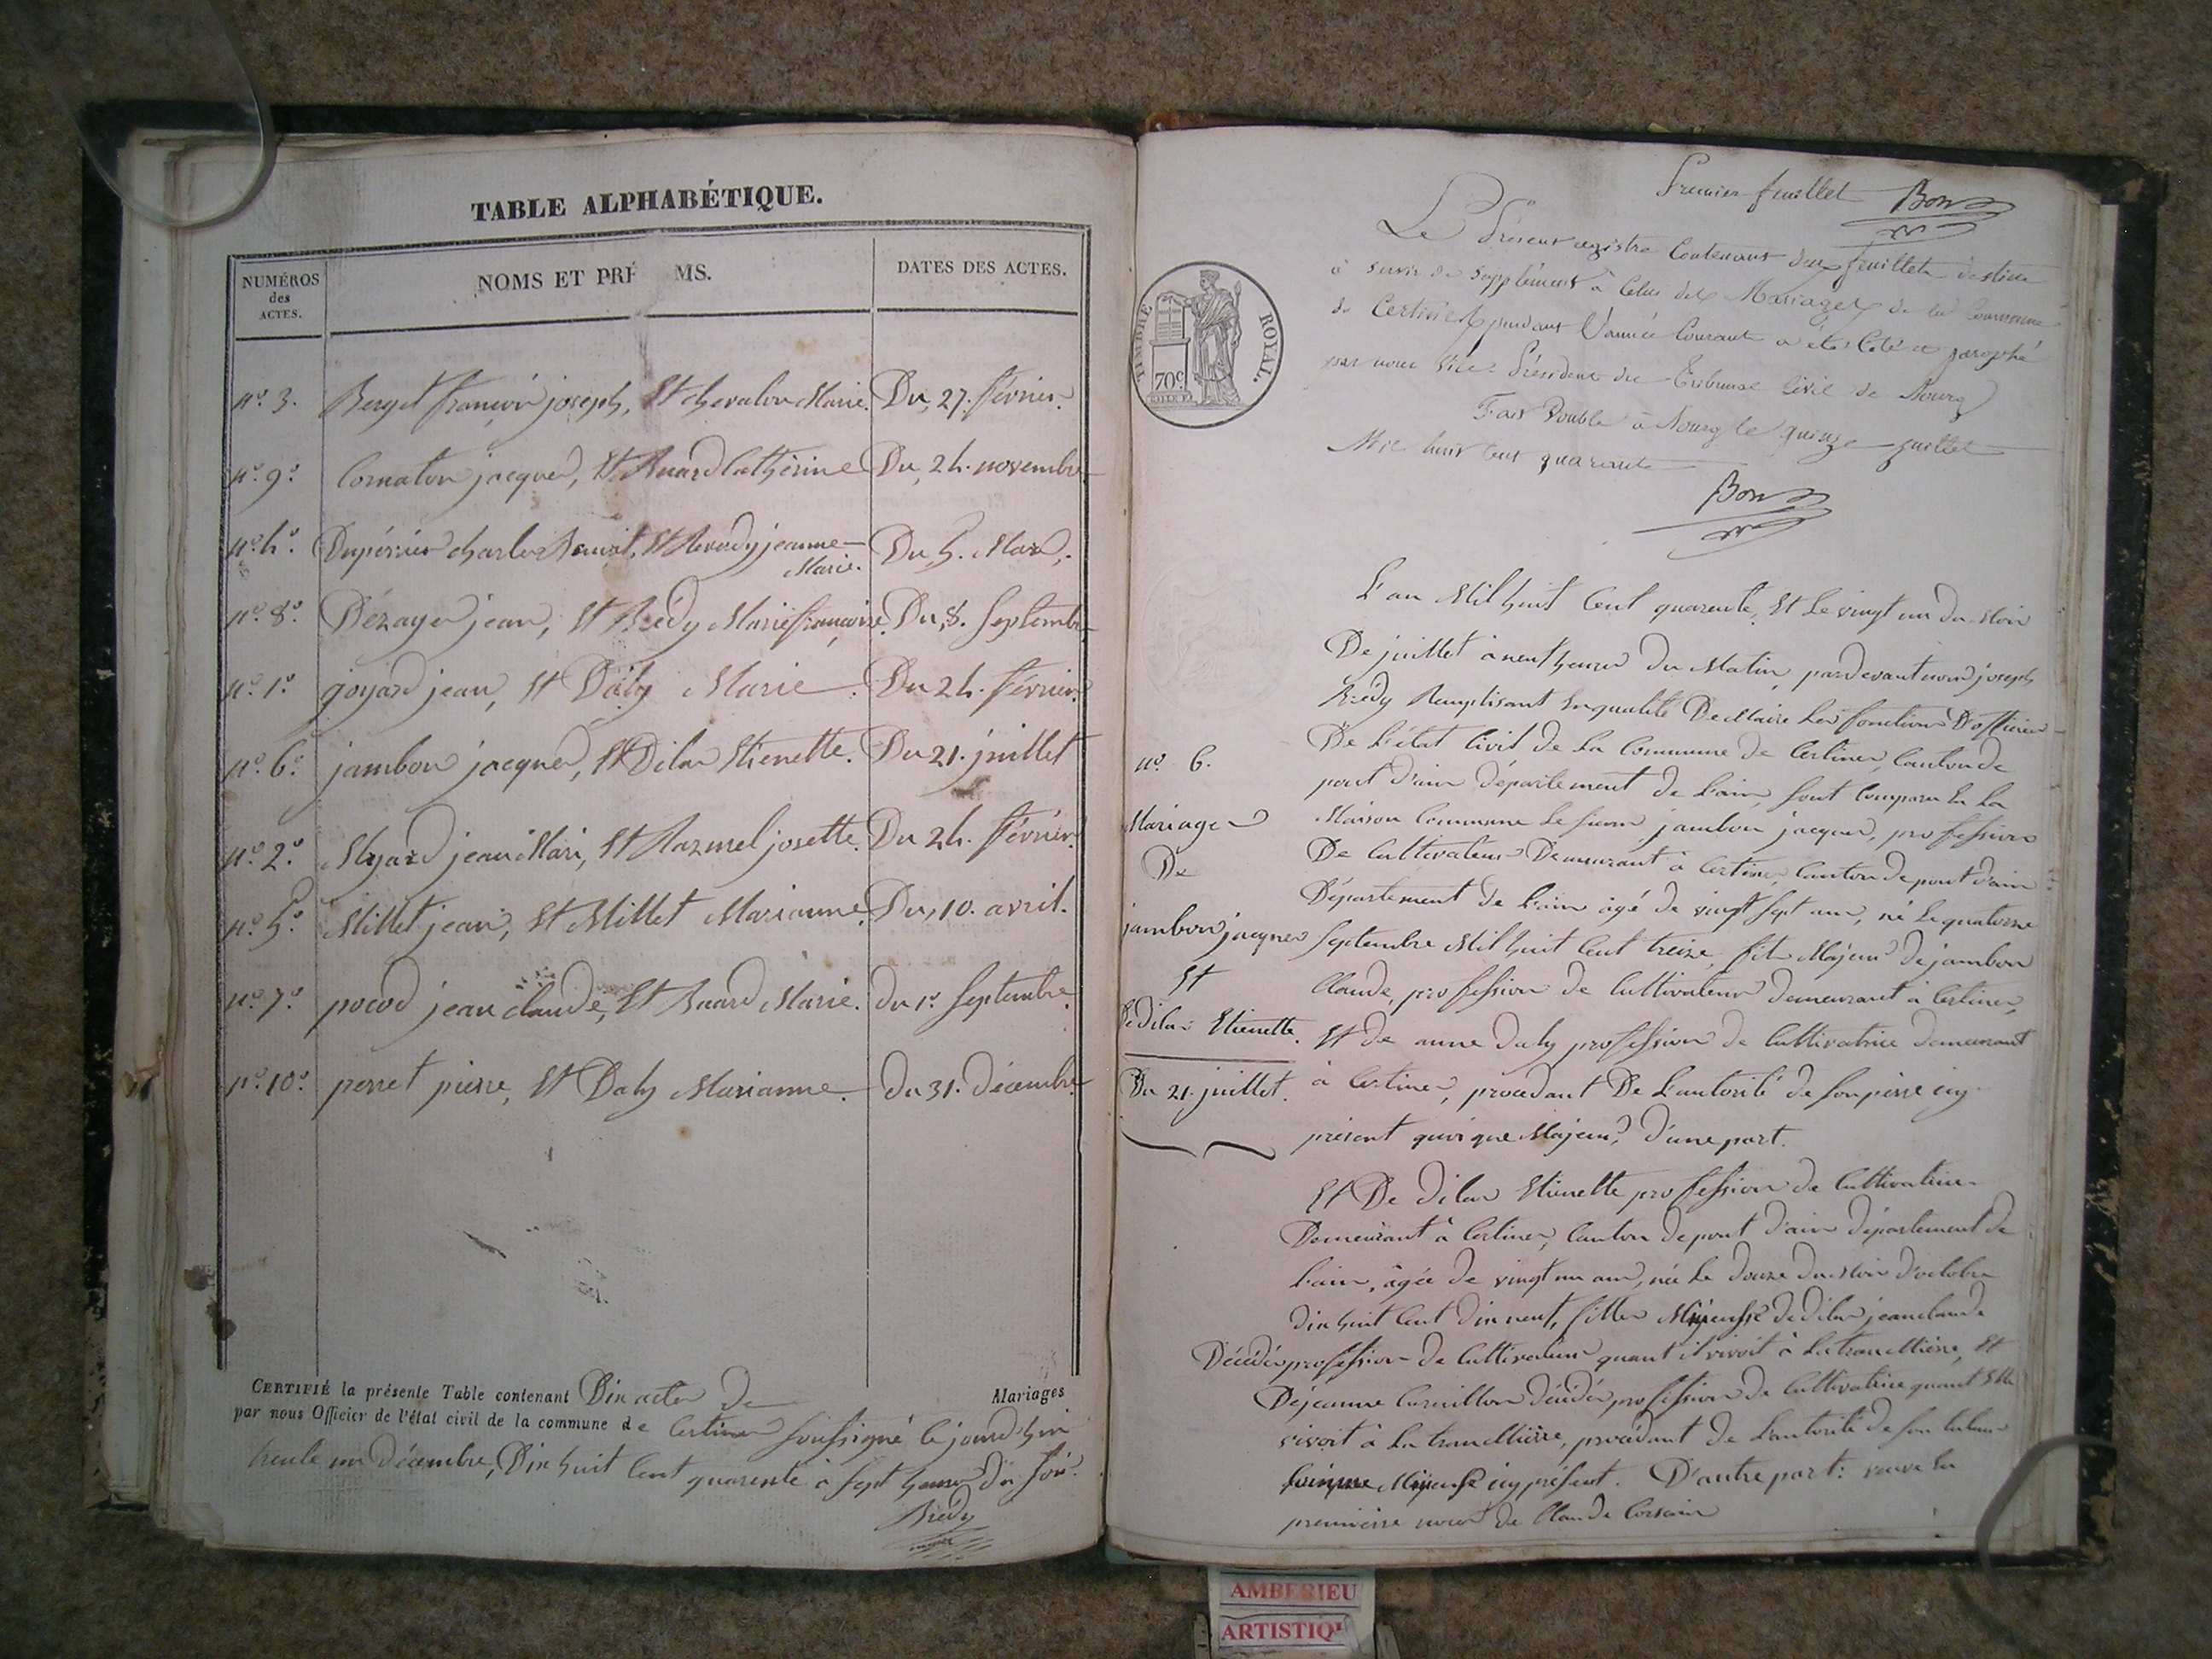 TABLE ALPHABÉTIQUE.
NUMÉROS
des
ACTES.
NOMS ET PRÉ MS.
DATES DES ACTES.
n.° 3. Berget françois joseph, Et chevalon Marie. Du, 27. février.
n.° 9.° Cornaton jacques, Et Buard Cathérine Du, 24. novembre
n.° 4.° Dupérrier charles Benoit, Et Brevdy jeanne Marie. Du, 5. Mars.
n.° 8.° Dézayer jean, Et Brédy Marie françoise. Du, 8. Septembre
n.° 1.° goyard jean, Et Daly Marie. Du 24. février.
n.° 6.° jambon jacques, Et Dilas Etienette. Du 21. juillet
n.° 2.° Myard jean Mari, Et Razurel josette. Du 24. février.
n.° 5.° Millet jean, Et Millet Marianne. Du, 10. avril.
n.° 7.° pocod jean claude, Et Buard Marie. du 1.er Septembre.
n.° 10.° perret pierre, Et Daly Marianne. du 31. décembre.
CERTIFIÉ la présente Table contenant Dix actes de Mariages
par nous Officier de l'état civil de la commune de Certines soussigné cejourd'hui
trente un décembre, Dix huit Cent quarente à sept heures du soir.
Brédy
Premier feuillet Bon
TIMBRE ROYAL.
70c
Le Présent registre Contenant deux feuillets destiné
à servir de Supplément à Celui des Mariages de la Commune
de Certines pendant l'année Courante a été Coté et paraphé
par nous Vice-Président du Tribunal Civil de Bourg
Fait Double à Bourg le quinze juillet
Mil huit cent quarante
Bon
L'an Mil huit Cent quarente, Et Le vingt un du Mois
De juillet à neuf heures du Matin, pardevant nous joseph
Brédy Remplisant En qualité De Maire Les fonctions D'officier
De L'état Civil de La Commune de Certines, Canton de
pont d'ain département de L'ain, sont Comparu En La
Maison Commune Le sieur jambon jacques, profession
De Cultivateur Demeurant à Certines, Canton de pont d'ain
Département de L'ain âgé de vingt sept ans, né Le quatorse
Septembre Mil huit Cent treize, fils Majeur de jambon
Claude, profession de Cultivateur demeurant à Certines,
Et de anne Daly profession de Cultivatrice demeurant
à Certines, procédant De L'autorité de son pèrre icy
présent quoi que Majeur, D'une part.
n.° 6.
Mariage
De
jambon jacques
Et
De Dilas Etienette.
Du 21. juillet.
Et De Dilas Etienette profession de Cultivatrice
Demeurant à Certines, Canton de pont d'ain département de
L'ain, âgée de vingt un ans, née Le douze du Mois d'octobre
dix huit Cent dix neuf, fille de Dilas jean claude
Décédé profession de Cultivateur quant il vivoit à La trancllière, Et
De jeanne décédée profession de Cultivatrice quant Elle
vivoit à La trancllière, procédant de L'autorité de son tuteur
icy présent. D'autre part: veuve En
premierre noces de Claude
AMBERIEU
ARTISTIQ